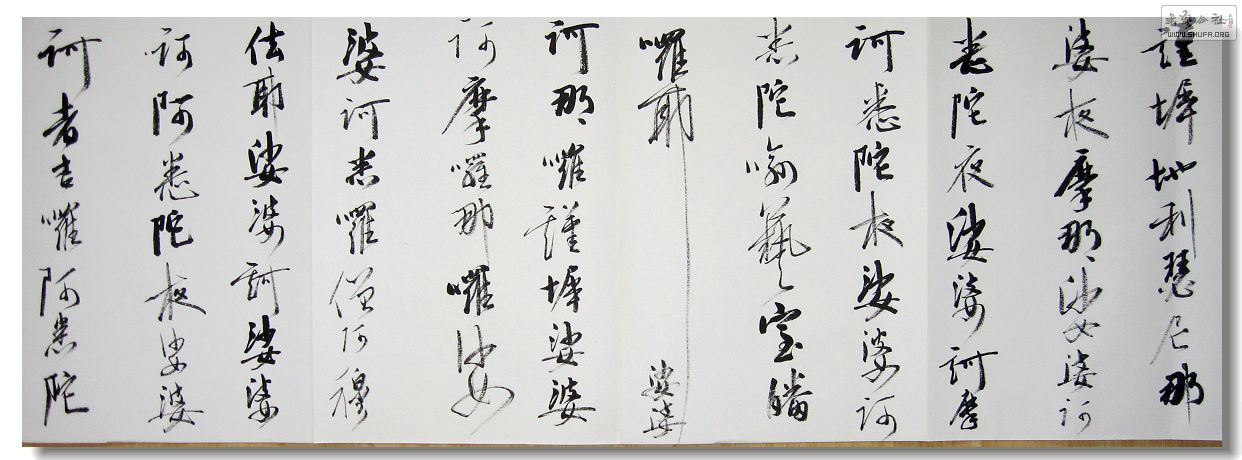 謹墀地利瑟尼那
婆夜摩那娑婆訶
悉陀夜娑婆訶摩
訶悉陀夜娑婆訶
悉陀喻藝室皤
囉耶娑婆
訶那囉謹墀娑婆
訶摩囉那囉娑
婆訶悉囉僧阿穆
佉耶娑婆訶娑婆
訶阿悉陀夜娑婆
訶者吉囉阿悉陀
公社
WWW.SHUFA.ORG